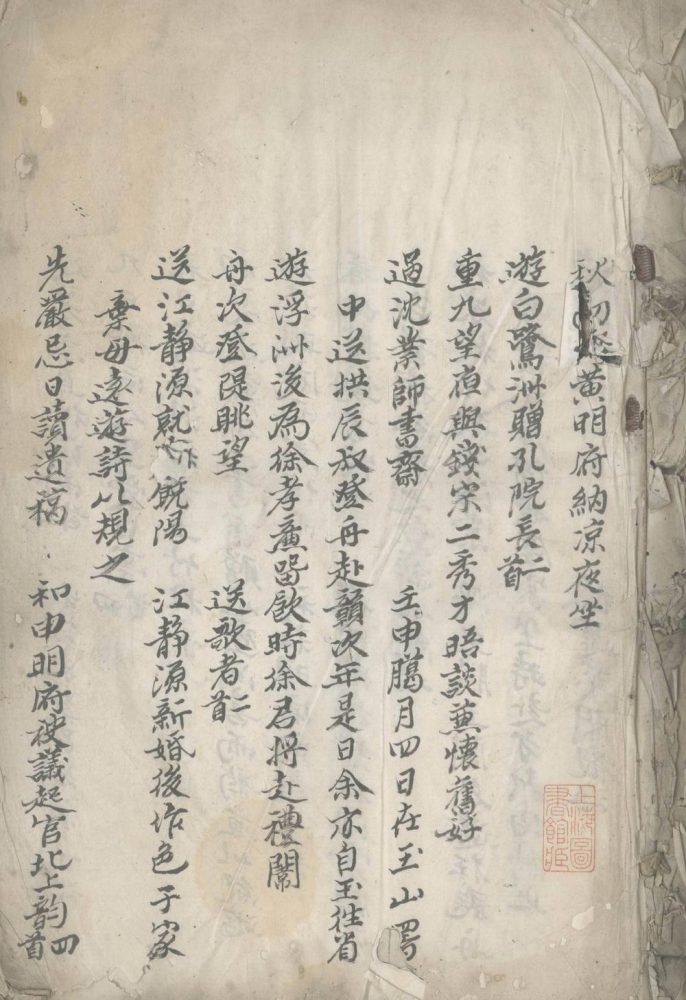 秋初
黃明府納凉夜坐
遊白鷺洲贈孔院長二首
重九望
與
宗二秀才晤談兼懷舊好
過沈業師書齋 壬申臈月四日在玉山署
中送拱辰叔登舟赴贛次年是日余亦自玉徃省
遊浮洲後為徐孝廉留飲時徐君將赴禮闈
舟次登隄眺望 送歌者二首
送江靜源就
餼陽 江靜源新婚後作
于家
棄母遠遊詩以規之
先嚴忌日讀遺稿 和申明府
議起官北上韵四首
上海圖書館臧